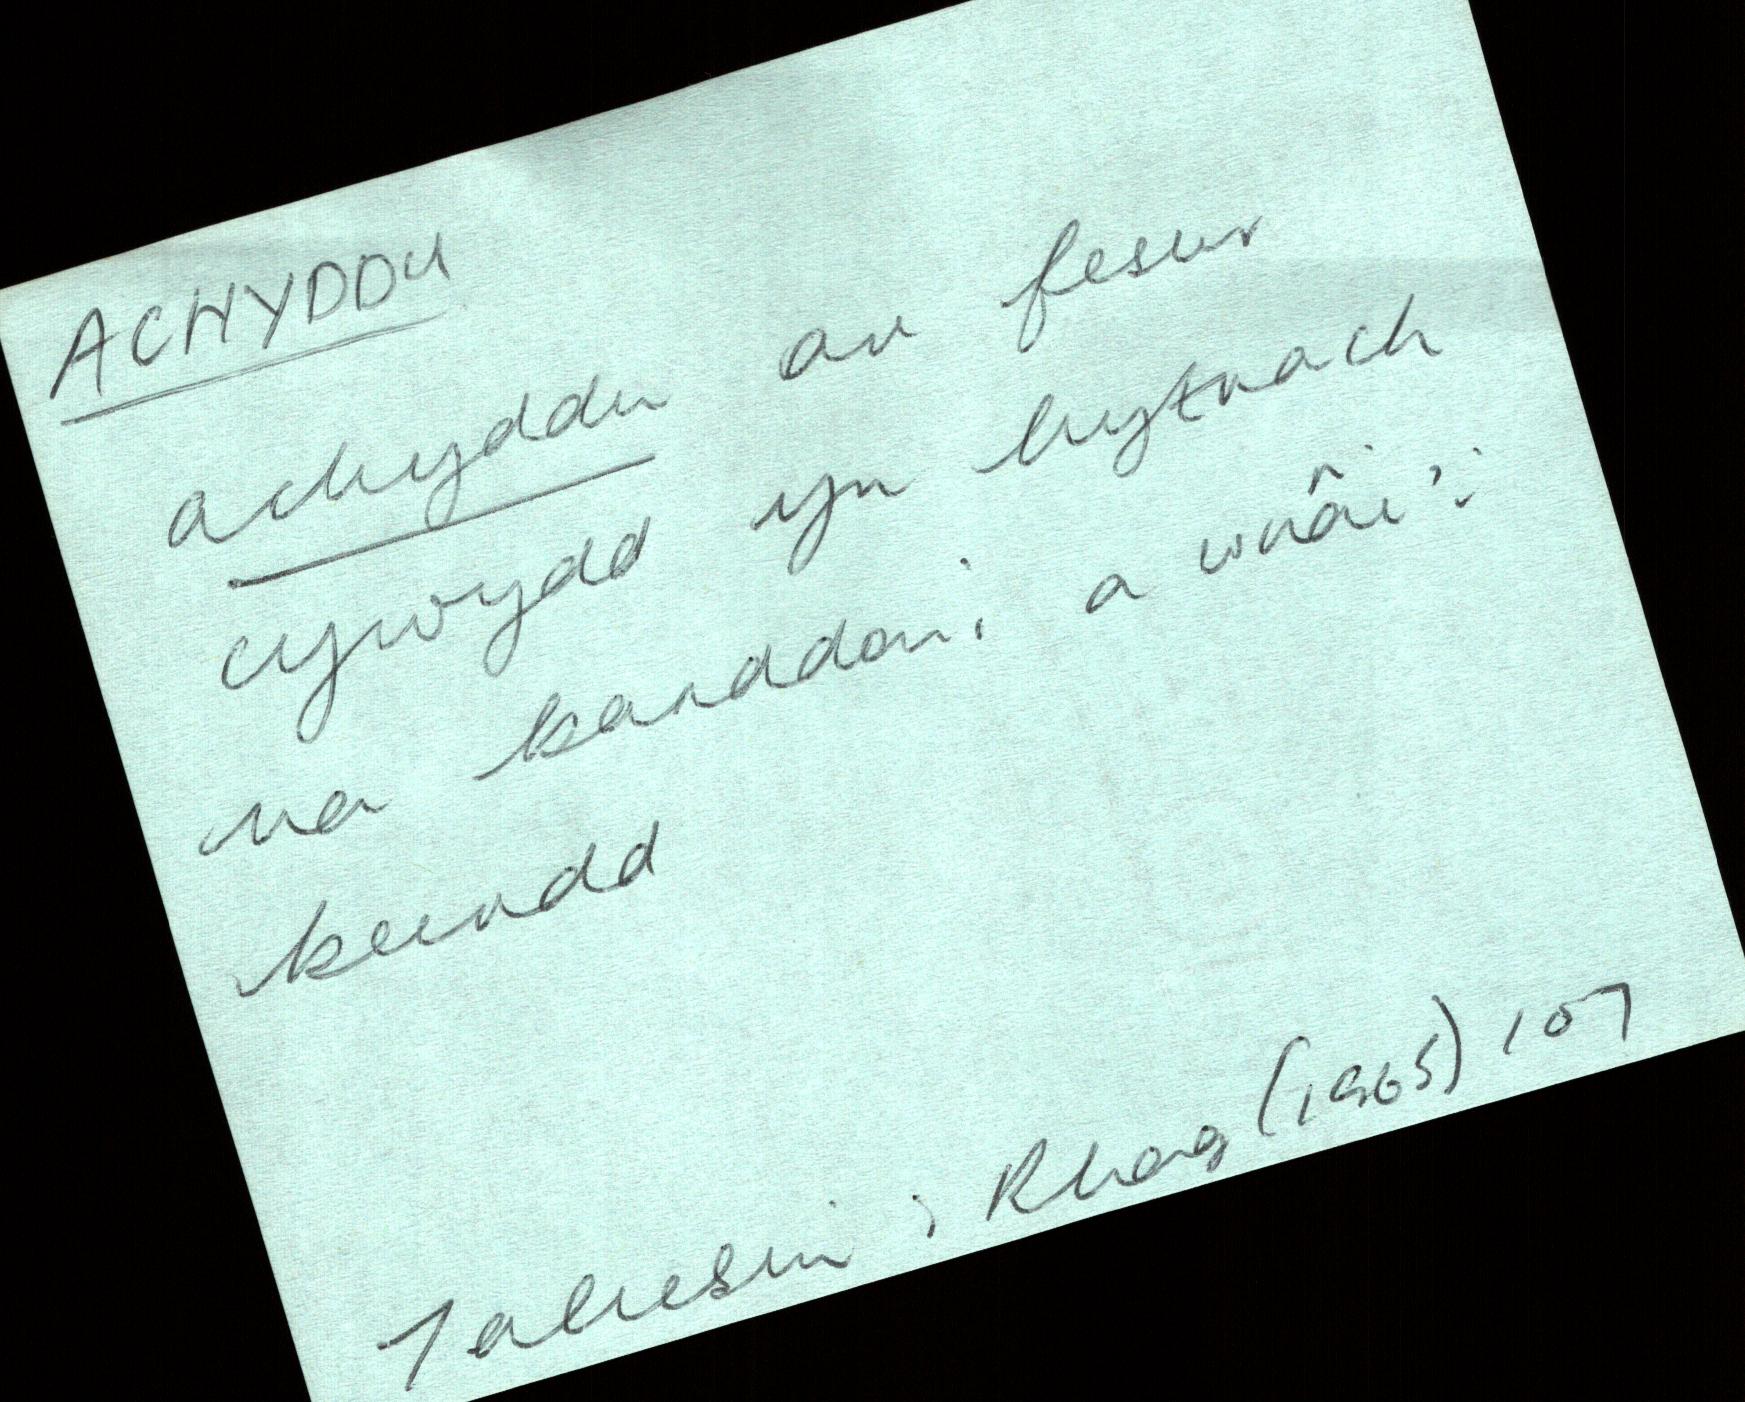 ACHYDDU
achyddu ar fesur
cywydd yn hytrach
na barddoni a wnâi'r
beirdd
Taliesin, Rhag (1965) 107